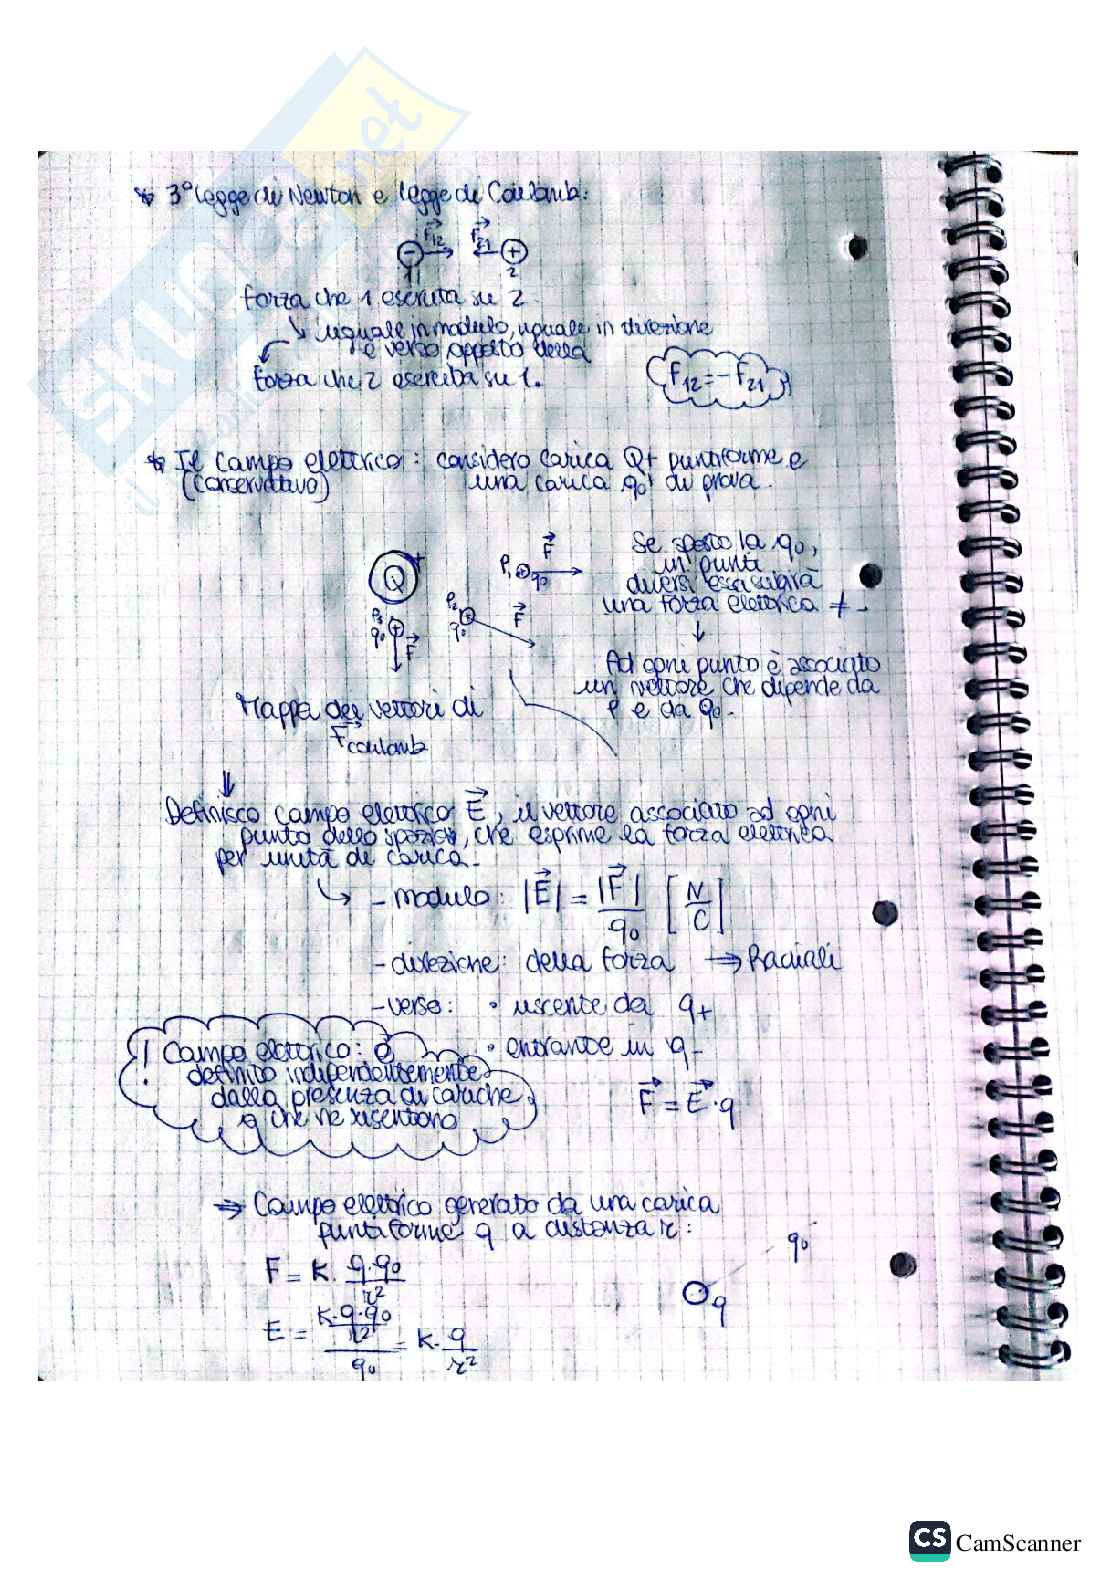 * 3° legge di Newton e legge di Coulomb:
F12 F21
- +
1 2
Forza che 1 esercita su 2
↳ uguale in modulo, uguale in direzione
e verso opposto della
Forza che 2 esercita su 1.
F12 = -F21
* Il campo elettrico: considero carica Q+ puntiforme e
(conservativo) una carica q0+ di prova.
Q+
P1 + q0 F
P2 + q0 F
P3 + q0 F
Se sposto la q0,
in punti
diversi essa subirà
una forza elettrica ≠.
↓
Ad ogni punto è associato
un vettore che dipende da
P e da q0.
Mappa dei vettori di
Fcoulomb
↓
Definisco campo elettrico E, il vettore associato ad ogni
punto dello spazio, che esprime la forza elettrica
per unità di carica.
↳ - modulo: |E| = |F| / q0 [N/C]
- direzione: della forza → Radiali
- verso: • uscente da q+
• entrante in q-
! Campo elettrico: è
definito indipendentemente
dalla presenza di cariche
che ne risentono
F = E · q
⇒ Campo elettrico generato da una carica
puntiforme q a distanza r:
F = K · q·q0 / r²
E = (K·q·q0 / r²) / q0 = K · q / r²
q0
q
SKUOLA.net
CS CamScanner